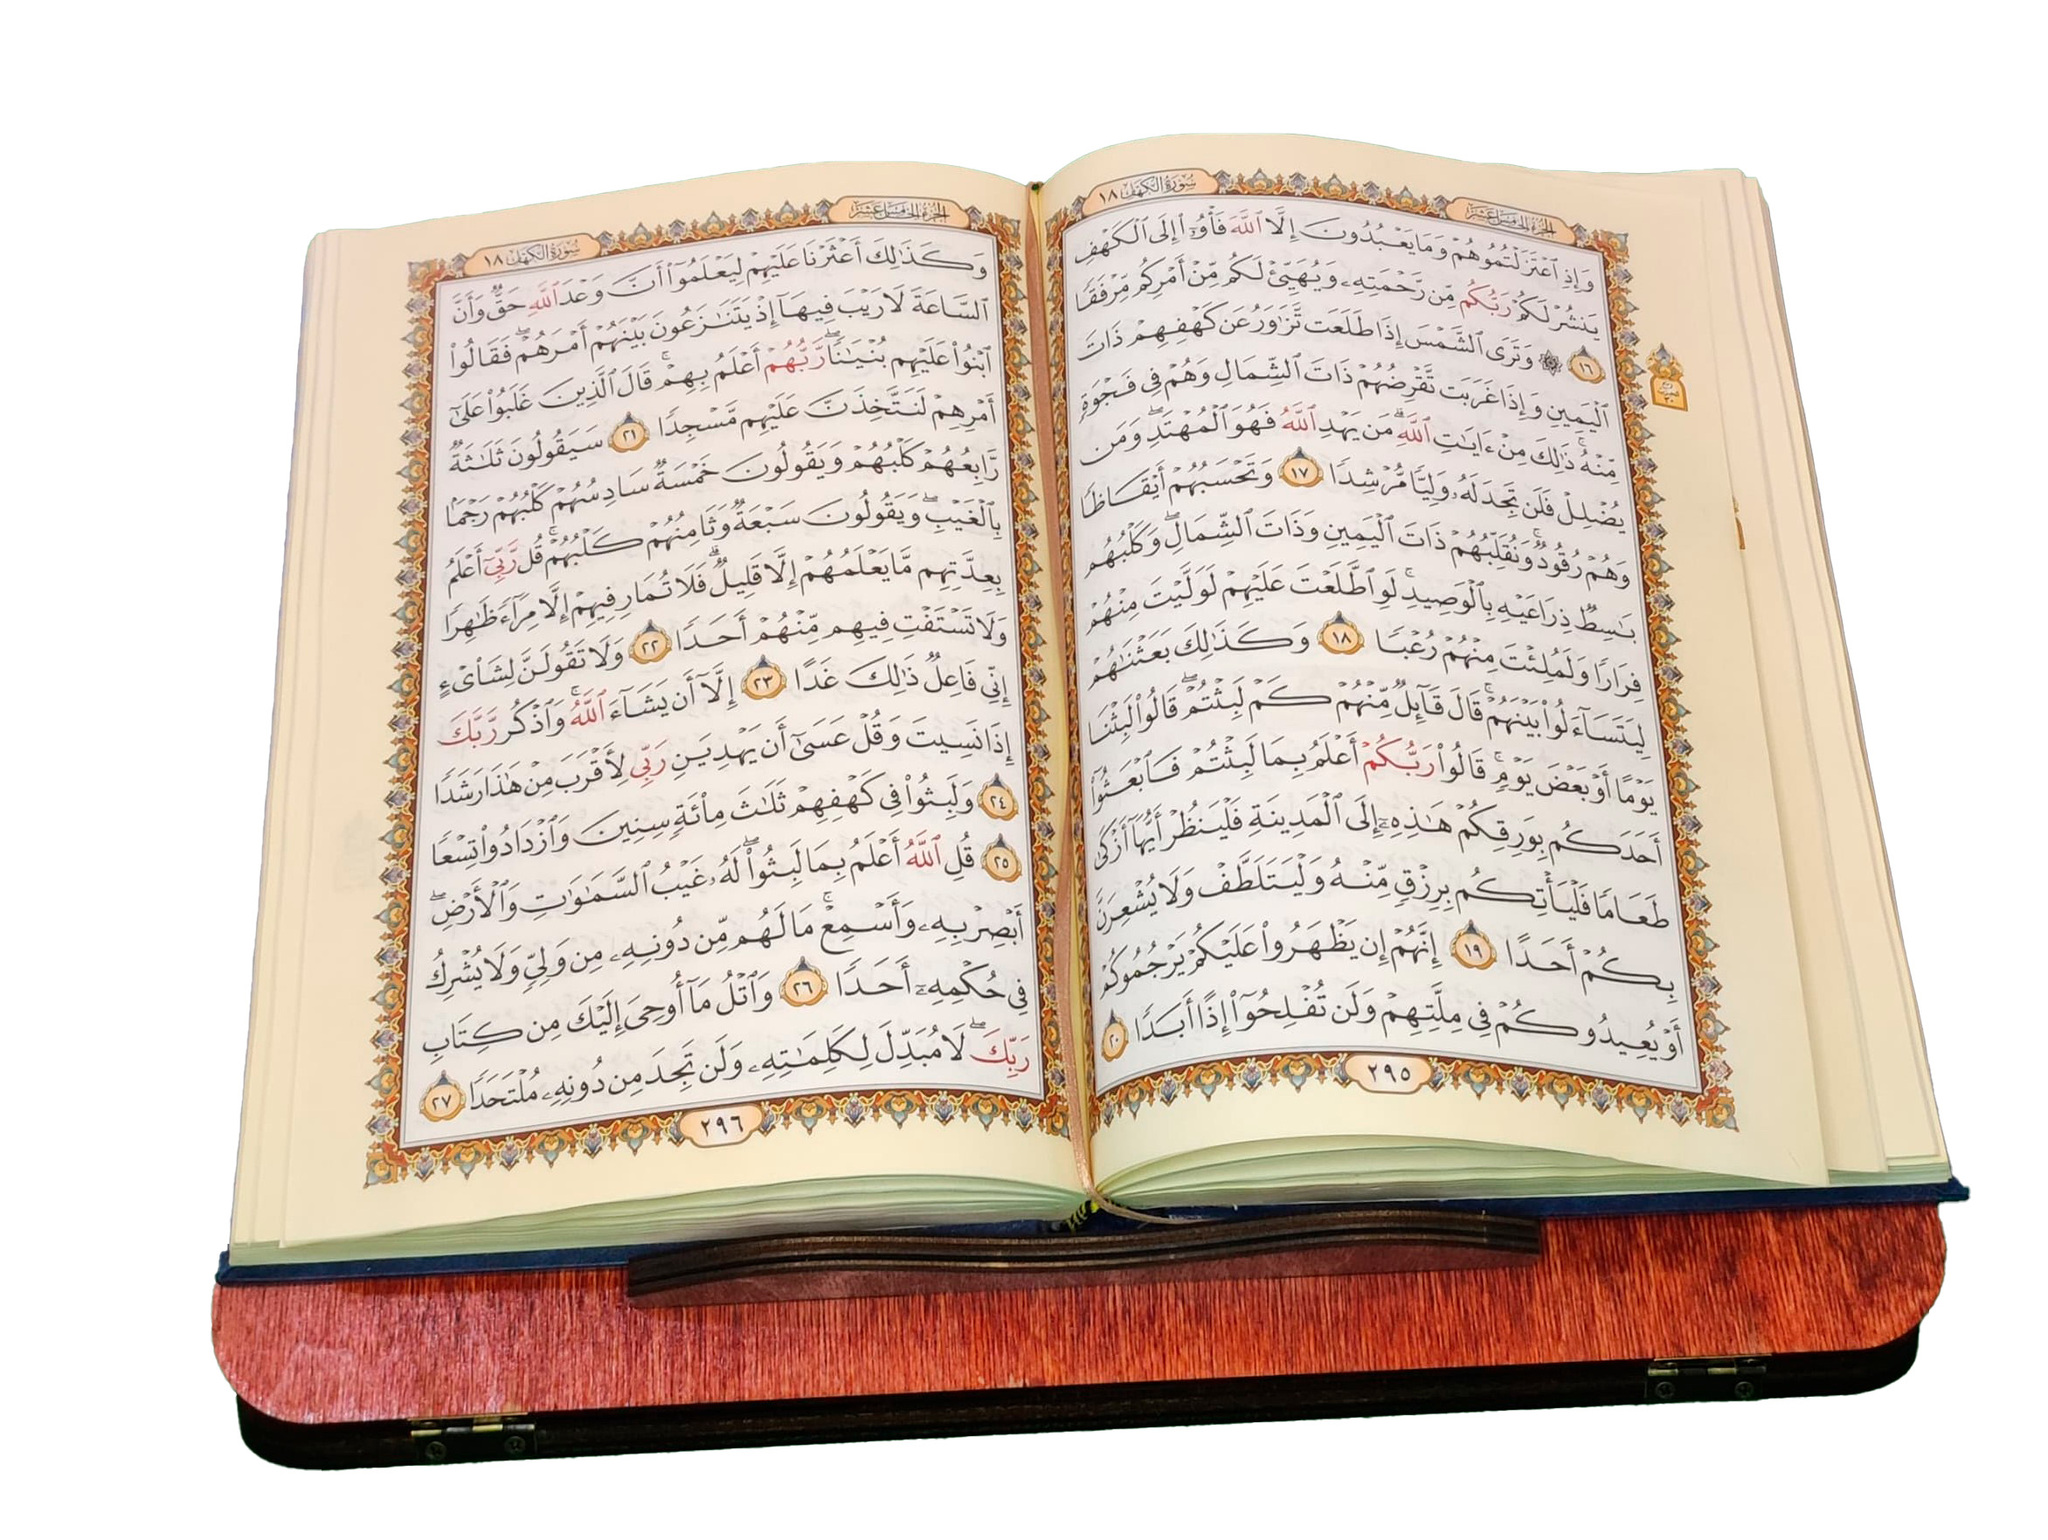 سورة الكهف ١٨
الجزء الخامس عشر
وَإِذِ ٱعْتَزَلْتُمُوهُمْ وَمَا يَعْبُدُونَ إِلَّا ٱللَّهَ فَأْوُۥٓا۟ إِلَى ٱلْكَهْفِ
يَنشُرْ لَكُمْ رَبُّكُم مِّن رَّحْمَتِهِۦ وَيُهَيِّئْ لَكُم مِّنْ أَمْرِكُم مِّرْفَقًا
١٦ ۞ وَتَرَى ٱلشَّمْسَ إِذَا طَلَعَت تَّزَٰوَرُ عَن كَهْفِهِمْ ذَاتَ
ٱلْيَمِينِ وَإِذَا غَرَبَت تَّقْرِضُهُمْ ذَاتَ ٱلشِّمَالِ وَهُمْ فِى فَجْوَةٍ
مِّنْهُ ۚ ذَٰلِكَ مِنْ ءَايَٰتِ ٱللَّهِ ۗ مَن يَهْدِ ٱللَّهُ فَهُوَ ٱلْمُهْتَدِ ۖ وَمَن
يُضْلِلْ فَلَن تَجِدَ لَهُۥ وَلِيًّا مُّرْشِدًا ١٧ وَتَحْسَبُهُمْ أَيْقَاظًا
وَهُمْ رُقُودٌ ۚ وَنُقَلِّبُهُمْ ذَاتَ ٱلْيَمِينِ وَذَاتَ ٱلشِّمَالِ ۖ وَكَلْبُهُم
بَٰسِطٌ ذِرَاعَيْهِ بِٱلْوَصِيدِ ۚ لَوِ ٱطَّلَعْتَ عَلَيْهِمْ لَوَلَّيْتَ مِنْهُمْ
فِرَارًا وَلَمُلِئْتَ مِنْهُمْ رُعْبًا ١٨ وَكَذَٰلِكَ بَعَثْنَٰهُمْ
لِيَتَسَآءَلُوا۟ بَيْنَهُمْ ۚ قَالَ قَآئِلٌ مِّنْهُمْ كَمْ لَبِثْتُمْ ۖ قَالُوا۟ لَبِثْنَا
يَوْمًا أَوْ بَعْضَ يَوْمٍ ۚ قَالُوا۟ رَبُّكُمْ أَعْلَمُ بِمَا لَبِثْتُمْ فَٱبْعَثُوٓا۟
أَحَدَكُم بِوَرِقِكُمْ هَٰذِهِۦٓ إِلَى ٱلْمَدِينَةِ فَلْيَنظُرْ أَيُّهَآ أَزْكَىٰ
طَعَامًا فَلْيَأْتِكُم بِرِزْقٍ مِّنْهُ وَلْيَتَلَطَّفْ وَلَا يُشْعِرَنَّ
بِكُمْ أَحَدًا ١٩ إِنَّهُمْ إِن يَظْهَرُوا۟ عَلَيْكُمْ يَرْجُمُوكُمْ
أَوْ يُعِيدُوكُمْ فِى مِلَّتِهِمْ وَلَن تُفْلِحُوٓا۟ إِذًا أَبَدًا ٢٠
٢٩٥
سورة الكهف ١٨
الجزء الخامس عشر
وَكَذَٰلِكَ أَعْثَرْنَا عَلَيْهِمْ لِيَعْلَمُوٓا۟ أَنَّ وَعْدَ ٱللَّهِ حَقٌّ وَأَنَّ
ٱلسَّاعَةَ لَا رَيْبَ فِيهَآ إِذْ يَتَنَٰزَعُونَ بَيْنَهُمْ أَمْرَهُمْ ۖ فَقَالُوا۟
ٱبْنُوا۟ عَلَيْهِم بُنْيَٰنًا ۖ رَّبُّهُمْ أَعْلَمُ بِهِمْ ۚ قَالَ ٱلَّذِينَ غَلَبُوا۟ عَلَىٰٓ
أَمْرِهِمْ لَنَتَّخِذَنَّ عَلَيْهِم مَّسْجِدًا ٢١ سَيَقُولُونَ ثَلَٰثَةٌ
رَّابِعُهُمْ كَلْبُهُمْ وَيَقُولُونَ خَمْسَةٌ سَادِسُهُمْ كَلْبُهُمْ رَجْمًۢا
بِٱلْغَيْبِ ۖ وَيَقُولُونَ سَبْعَةٌ وَثَامِنُهُمْ كَلْبُهُمْ ۚ قُل رَّبِّىٓ أَعْلَمُ
بِعِدَّتِهِم مَّا يَعْلَمُهُمْ إِلَّا قَلِيلٌ ۗ فَلَا تُمَارِ فِيهِمْ إِلَّا مِرَآءً ظَٰهِرًا
وَلَا تَسْتَفْتِ فِيهِم مِّنْهُمْ أَحَدًا ٢٢ وَلَا تَقُولَنَّ لِشَا۟ىْءٍ
إِنِّى فَاعِلٌ ذَٰلِكَ غَدًا ٢٣ إِلَّآ أَن يَشَآءَ ٱللَّهُ ۚ وَٱذْكُر رَّبَّكَ
إِذَا نَسِيتَ وَقُلْ عَسَىٰٓ أَن يَهْدِيَنِ رَبِّى لِأَقْرَبَ مِنْ هَٰذَا رَشَدًا
٢٤ وَلَبِثُوا۟ فِى كَهْفِهِمْ ثَلَٰثَ مِا۟ئَةٍ سِنِينَ وَٱزْدَادُوا۟ تِسْعًا
٢٥ قُلِ ٱللَّهُ أَعْلَمُ بِمَا لَبِثُوا۟ ۖ لَهُۥ غَيْبُ ٱلسَّمَٰوَٰتِ وَٱلْأَرْضِ ۖ
أَبْصِرْ بِهِۦ وَأَسْمِعْ ۚ مَا لَهُم مِّن دُونِهِۦ مِن وَلِىٍّ وَلَا يُشْرِكُ
فِى حُكْمِهِۦٓ أَحَدًا ٢٦ وَٱتْلُ مَآ أُوحِىَ إِلَيْكَ مِن كِتَابِ
رَبِّكَ ۖ لَا مُبَدِّلَ لِكَلِمَٰتِهِۦ وَلَن تَجِدَ مِن دُونِهِۦ مُلْتَحَدًا ٢٧
٢٩٦